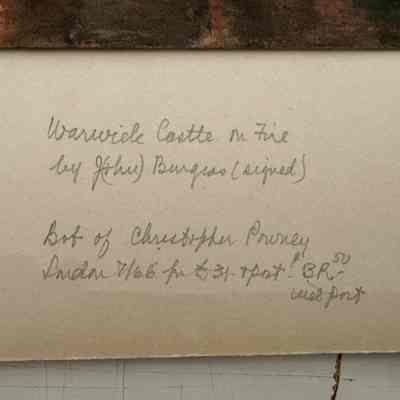 Warwick Castle on Fire
by J(ohn) Burgess (signed)
Bot of Christopher Powney
London 7/66 for £31 + post
incl post